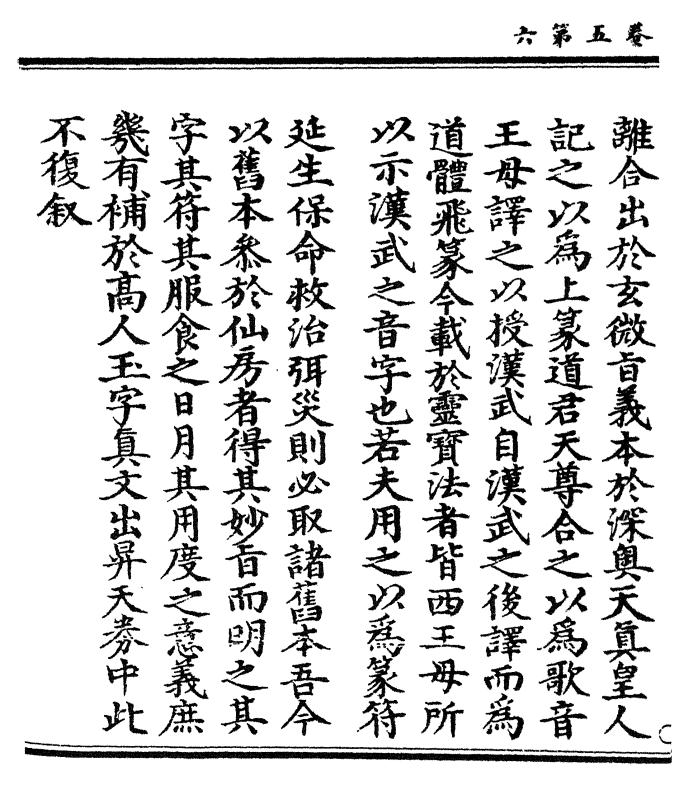 卷五第六
離合出於玄微旨義本於深輿天眞皇人
記之以爲上篆道君天尊合之以爲歌音
王母譯之以授漢武自漢武之後譯而爲
道體飛篆今載於靈寶法者皆西王母所
以示漢武之音字也若夫用之以爲篆符
延生保命救治弭災則必取諸舊本吾今
以舊本叅於仙房者得其妙旨而明之其
字其符其服食之日月其用度之意義庶
幾有補於髙人玉字眞文出昇天劵中此
不復叙